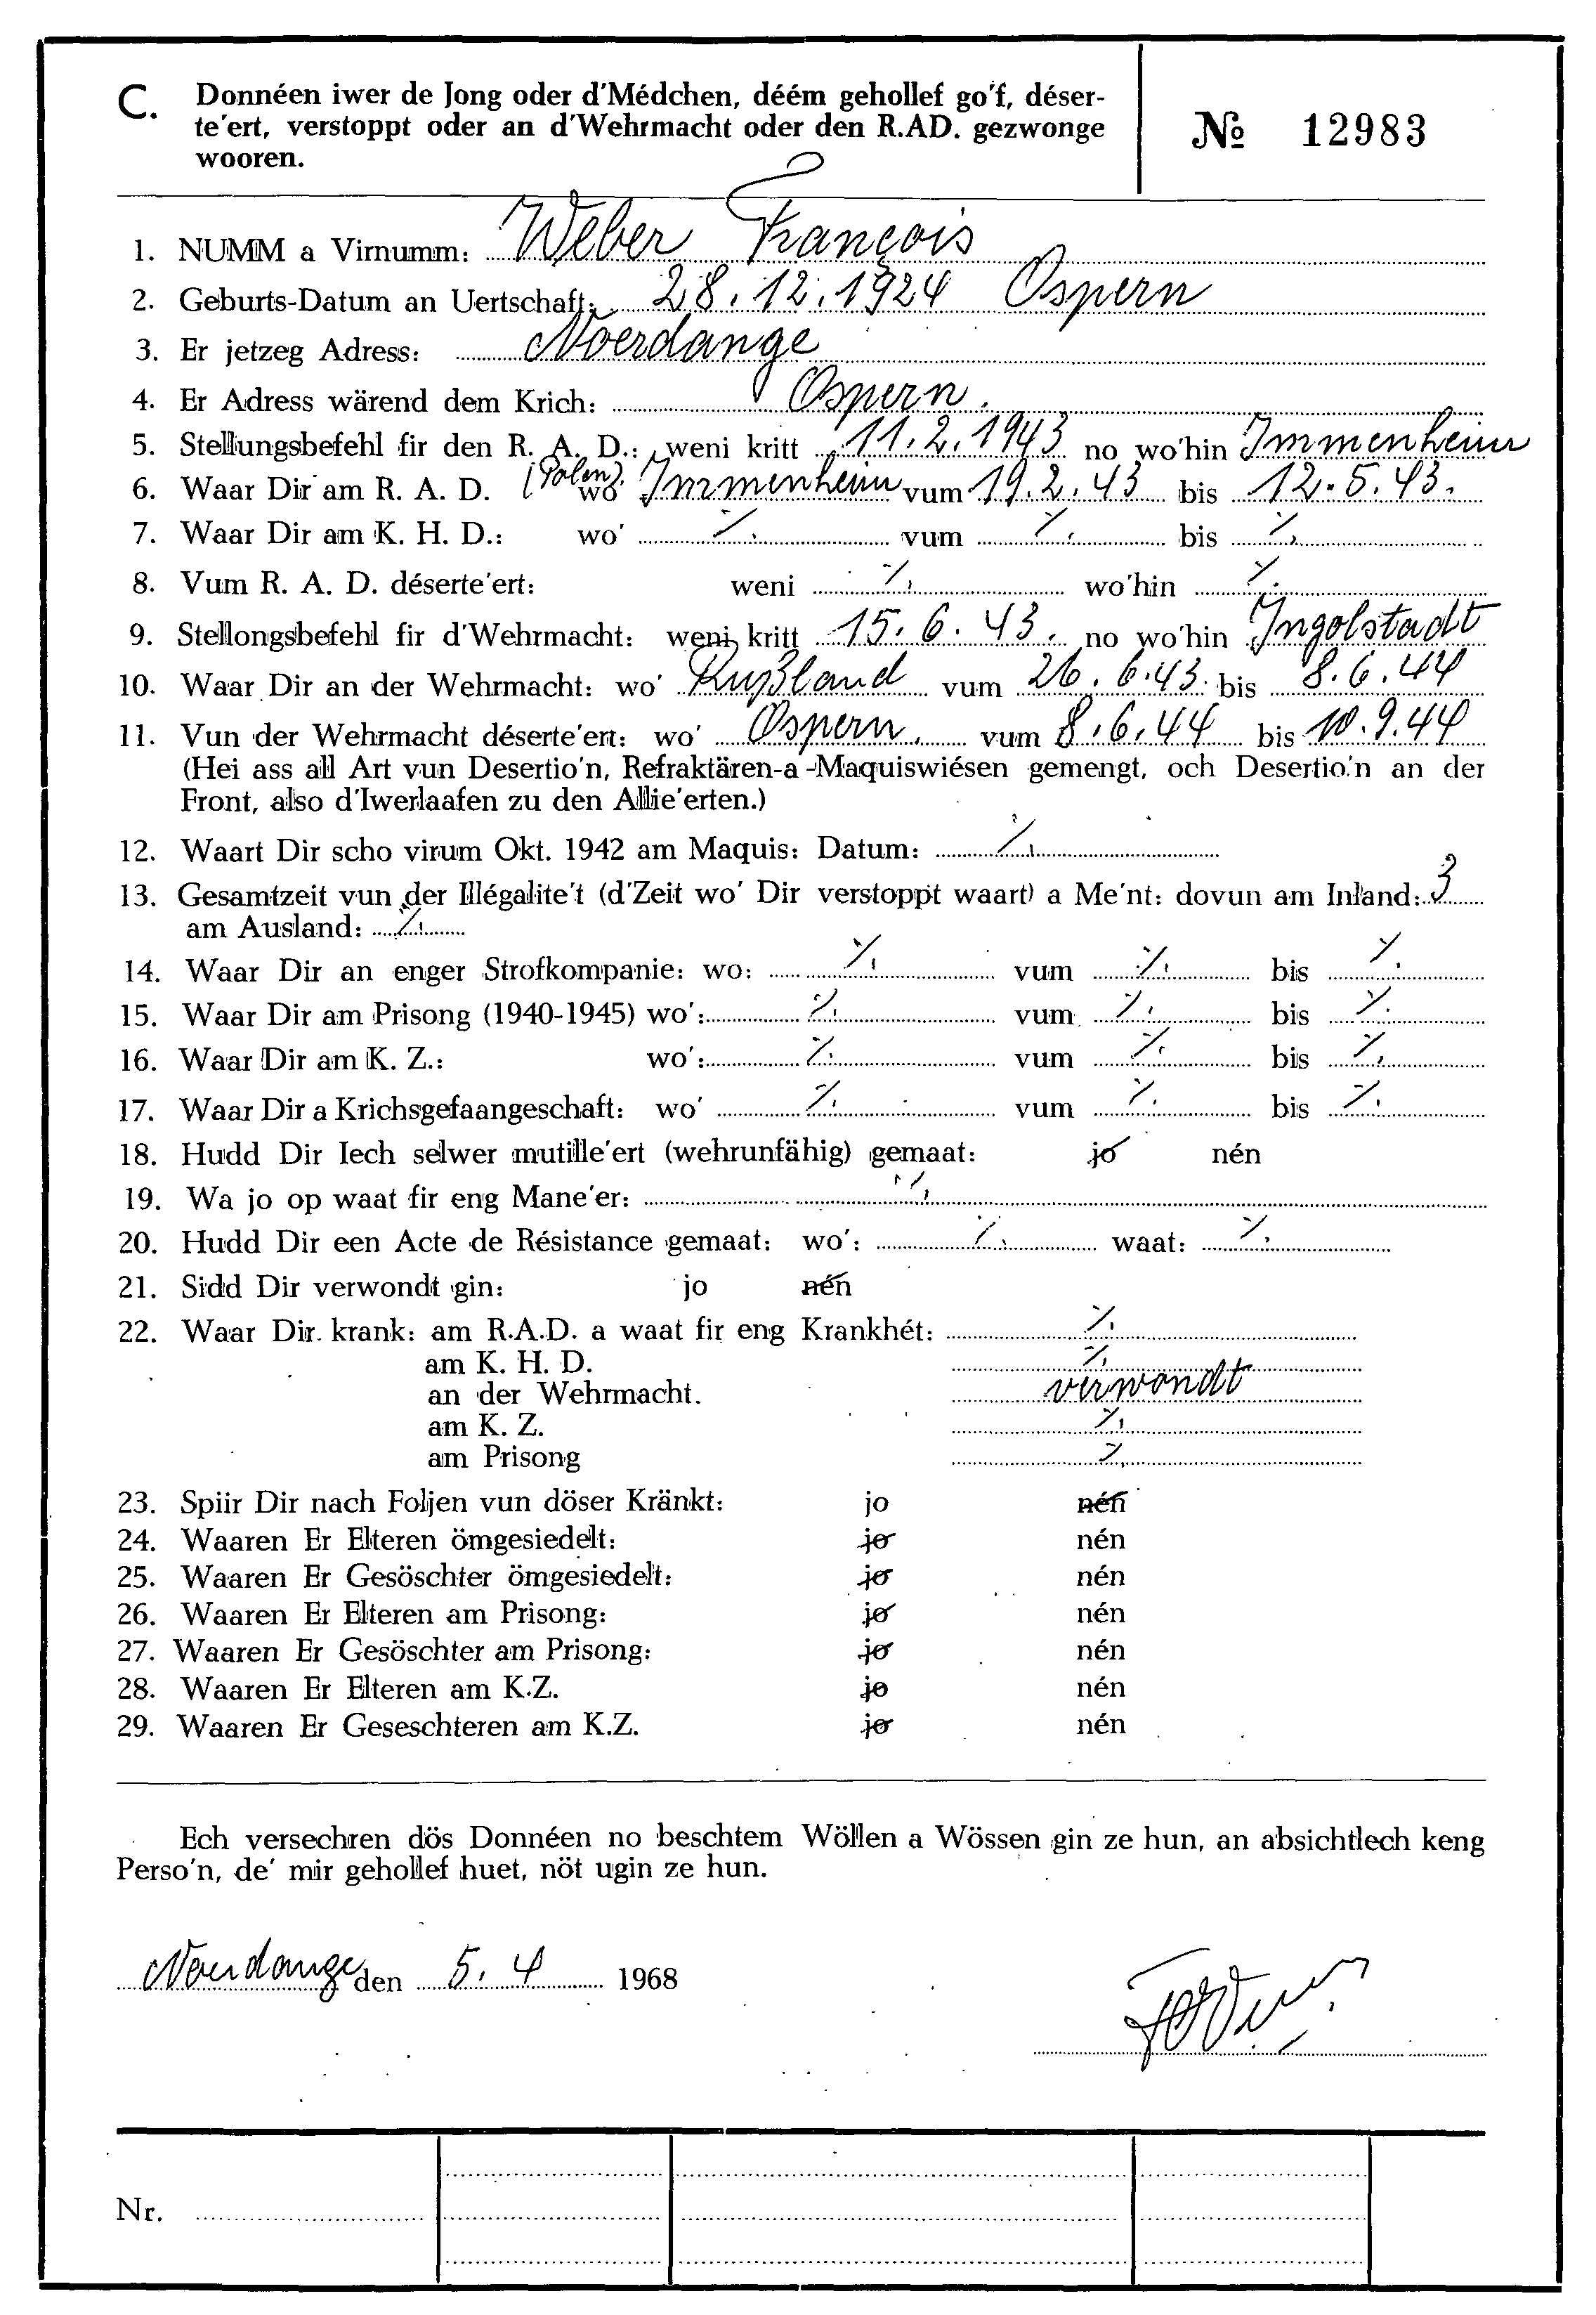 C. Donnéen iwer de Jong oder d'Médchen, déém gehollef go'f, déser-
te'ert, verstoppt oder an d'Wehrmacht oder den R.AD. gezwonge
wooren.
№ 12983
1. NUMM a Virnumm: Weber François
2. Geburts-Datum an Uertschaft: 28.12.1924 Ospern
3. Er jetzeg Adress: Noerdange
4. Er Adress wärend dem Krich: Ospern.
5. Stellungsbefehl fir den R. A. D.: weni kritt 11.2.1943 no wo'hin Immenheim
6. Waar Dir am R. A. D. (Polen). wo' Immenheim vum 19.2.43 bis 12.5.43.
7. Waar Dir am K. H. D.: wo' ⁒ vum ⁒ bis ⁒
8. Vum R. A. D. déserte'ert: weni ⁒ wo'hin ⁒
9. Stellongsbefehl fir d'Wehrmacht: weni kritt 15.6.43. no wo'hin Ingolstadt
10. Waar Dir an der Wehrmacht: wo' Rußland vum 26.6.43. bis 8.6.44
11. Vun der Wehrmacht déserte'ert: wo' Ospern. vum 8.6.44 bis 10.9.44
(Hei ass all Art vun Desertio'n, Refraktären-a-Maquiswiésen gemengt, och Desertio'n an der
Front, also d'Iwerlaafen zu den Allie'erten.)
12. Waart Dir scho virum Okt. 1942 am Maquis: Datum: ⁒
13. Gesamtzeit vun der Illégalite't (d'Zeit wo' Dir verstoppt waart) a Me'nt: dovun am Inland: 3
am Ausland: ⁒
14. Waar Dir an enger Strofkompanie: wo: ⁒ vum ⁒ bis ⁒
15. Waar Dir am Prisong (1940-1945) wo': ⁒ vum ⁒ bis ⁒
16. Waar Dir am K. Z.: wo': ⁒ vum ⁒ bis ⁒
17. Waar Dir a Krichsgefaangeschaft: wo' ⁒ vum ⁒ bis ⁒
18. Hudd Dir Iech selwer mutille'ert (wehrunfähig) gemaat: jo nén
19. Wa jo op waat fir eng Mane'er: ⁒
20. Hudd Dir een Acte de Résistance gemaat: wo': ⁒ waat: ⁒
21. Sidd Dir verwondt gin: jo nén
22. Waar Dir. krank: am R.A.D. a waat fir eng Krankhét: ⁒
am K. H. D. ⁒
an der Wehrmacht. verwondt
am K. Z. ⁒
am Prisong ⁒
23. Spiir Dir nach Foljen vun döser Kränkt: jo nén
24. Waaren Er Elteren ömgesiedelt: jo nén
25. Waaren Er Gesöschter ömgesiedelt: jo nén
26. Waaren Er Elteren am Prisong: jo nén
27. Waaren Er Gesöschter am Prisong: jo nén
28. Waaren Er Elteren am K.Z. jo nén
29. Waaren Er Geseschteren am K.Z. jo nén
Ech versechren dös Donnéen no beschtem Wöllen a Wössen gin ze hun, an absichtlech keng
Perso'n, de' mir gehollef huet, nöt ugin ze hun.
Noerdange den 5.4 1968
Nr.